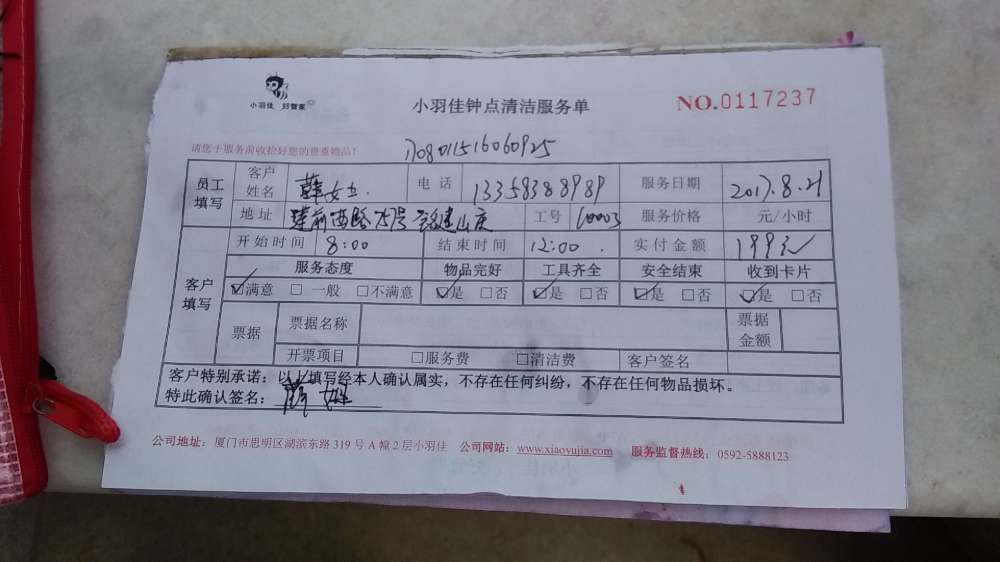 小羽佳 好管家
小羽佳钟点清洁服务单
NO.0117237
请您于服务前收拾好您的贵重物品!
员工填写 客户姓名 韩女士. 电话 13358388989 服务日期 2017.8.21
地址 莲前西路75号 工号 10003 服务价格 元/小时
客户填写 开始时间 8:00 结束时间 12:00. 实付金额 199元
服务态度 物品完好 工具齐全 安全结束 收到卡片
☑满意 □ 一般 □不满意 ☑是 □否 ☑是 □否 ☑是 □否 ☑是 □否
票据 票据名称 票据金额
开票项目 □服务费 □清洁费 客户签名
客户特别承诺:以上填写经本人确认属实,不存在任何纠纷,不存在任何物品损坏。
特此确认签名:
公司地址:厦门市思明区湖滨东路319号A幢2层小羽佳 公司网站:www.xiaoyujia.com 服务监督热线:0592-5888123